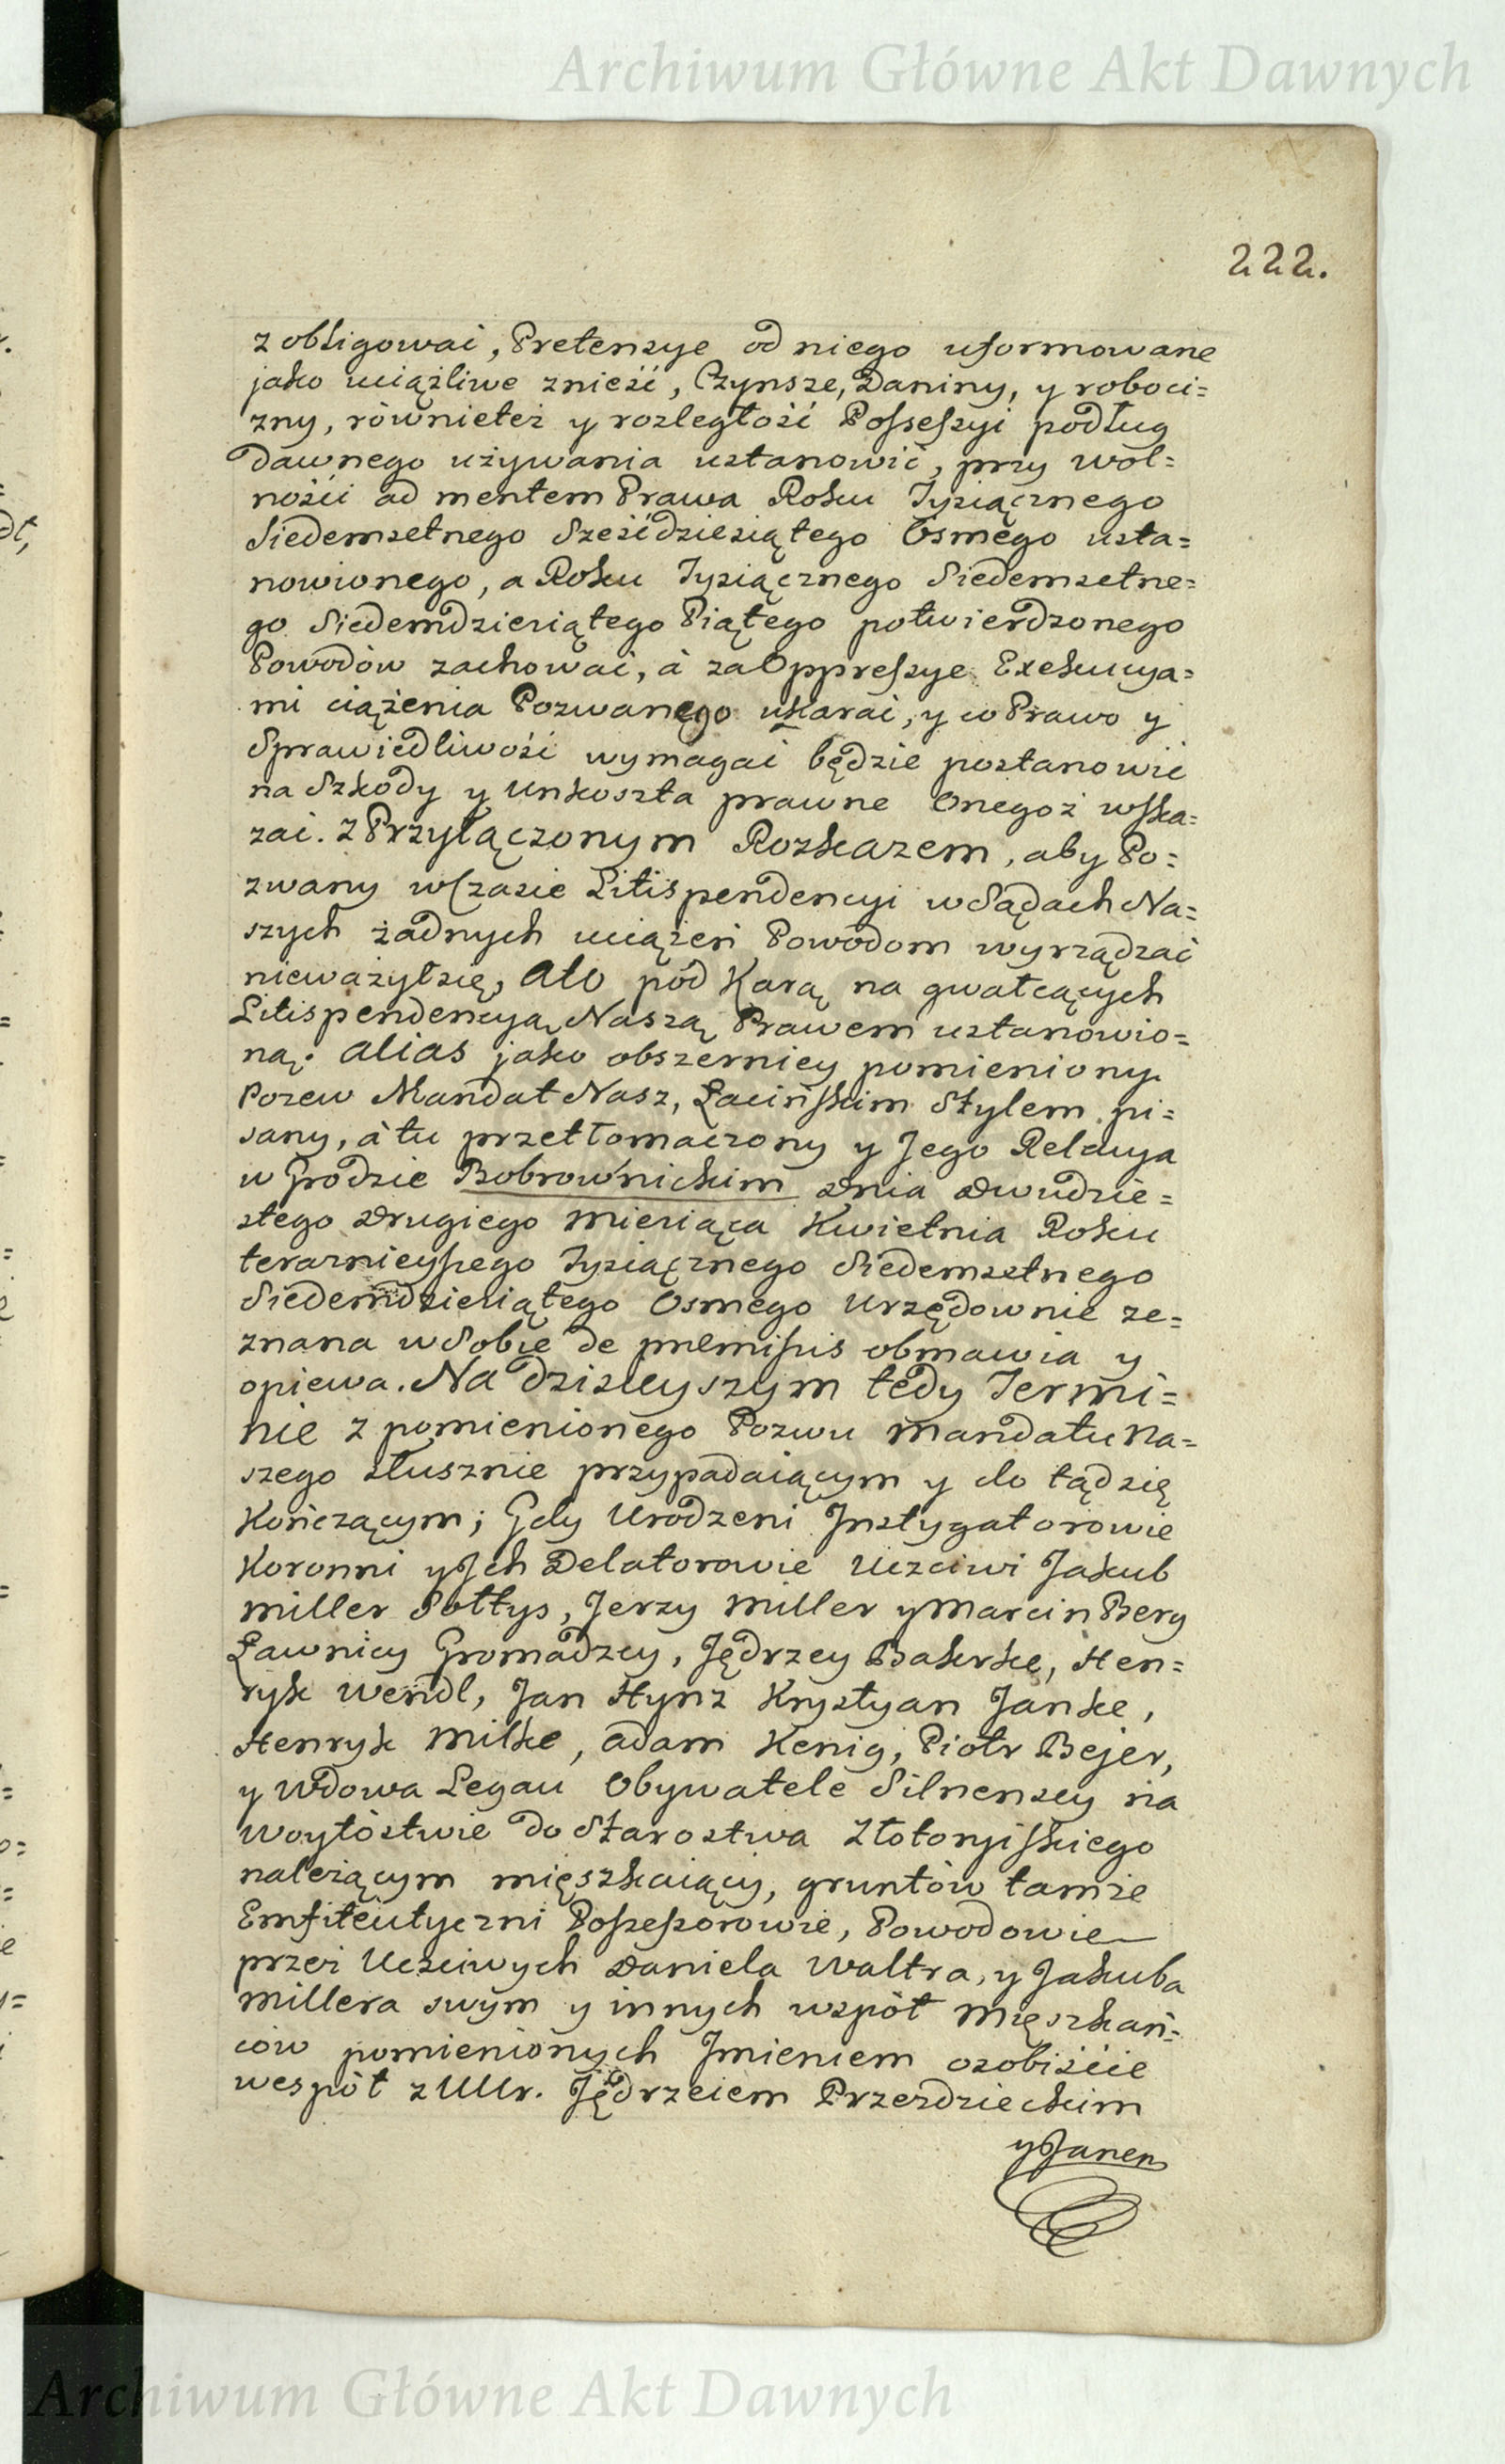 Archiwum Główne Akt Dawnych
222.
z obligować, Pretensye od niego uformowane
jako uciążliwe znieść, Czynsze, Daniny, y roboci=
zny, równieteż y rozległość Possessyi podług
dawnego używania ustanowić, przy wol=
ności ad mentem Prawa Roku Tysiącznego
Siedemsetnego Sześćdziesiątego Osmego usta=
nowionego, a Roku Tysiącznego Siedemsetne=
go Siedemdziesiątego Piątego potwierdzonego
Powodów zachować, à za Oppressye Exekucya=
mi ciążenia Pozwanego ukarać, y co Prawo y
Sprawiedliwość wymagać będzie postanowić
na Szkody y Unkoszta prawne Onegoż wska=
zać. Z Przyłączonym Rozkazem, aby Po=
zwany w Czasie Litispendencyi w Sądach Na=
szych żadnych uciążeń Powodom wyrządzać
nieważyłsię, Ato pód Karą na gwałcących
Litispendencyą Naszą Prawem ustanowio=
ną. alias jako obszerniey pomieniony
Pozew Mandat Nasz, Łacińskim Stylem pi=
sany, à tu przetłomaczony y Jego Relacya
w Grodzie Bobrownickim Dnia Dwudzie=
stego Drugiego Miesiąca Kwietnia Roku
terazniejszego Tysiącznego Siedemsetnego
Siedemdziesiątego Osmego Urzędownie ze=
znana w Sobie de premissis obmawia y
opiewa. Na dzisieyszym tedy Termi=
nie z pomienionego Pozwu Mandatu Na=
szego słusznie przypadaiącym y do tądsię
Kończącym; Gdy Urodzeni Jnstygatorowie
Koronni y Jch Delatorowie Uczciwi Jakub
Miller Sołtys, Jerzy Miller y Marcin Berg
Ławnicy Gromadzcy, Jędrzey Bakrke, Hen=
ryk Wendl, Jan Hynz Krystyan Janke,
Henryk Milke, Adam Kenig, Piotr Bejer,
y Wdowa Legau Obywatele Silnenscy na
Woytóstwie do Starostwa Złotoryiskiego
należącym mięszkaiący, gruntów tamże
Emfiteutyczni Possessorowie, Powodowie
przez Uczciwych Daniela Waltra, y Jakuba
Millera swym y innych współ Mięszkań=
ców pomienionych Jmieniem osobiście
wespół z UUr. Jędrzeiem Przezdzieckim
y Janem
Archiwum Główne Akt Dawnych